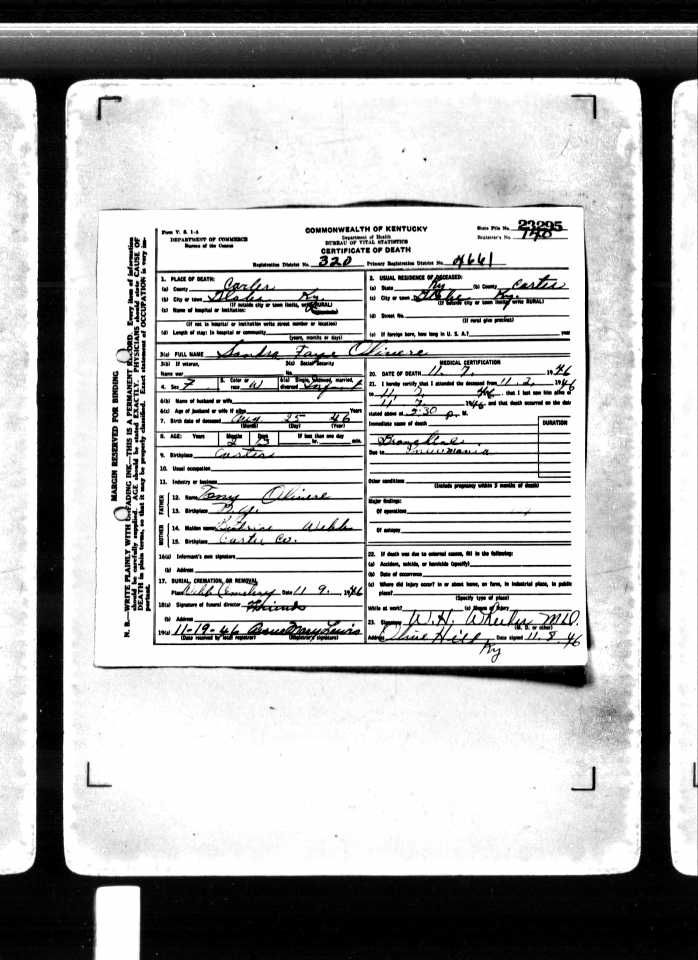 Form V. S. 1-A
DEPARTMENT OF COMMERCE
Bureau of the Census
COMMONWEALTH OF KENTUCKY
Department of Health
BUREAU OF VITAL STATISTICS
CERTIFICATE OF DEATH
State File No. 23295
Registrar's No. 140
Registration District No. 320 Primary Registration District No. 4661
MARGIN RESERVED FOR BINDING
N. B.—WRITE PLAINLY WITH UNFADING INK—THIS IS A PERMANENT RECORD. Every item of information
should be carefully supplied. AGE should be stated EXACTLY. PHYSICIANS should state CAUSE OF
DEATH in plain terms, so that it may be properly classified. Exact statement of OCCUPATION is very important.
1. PLACE OF DEATH:
(a) County Carter
(b) City or town Ky
(If outside city or town limits, write RURAL)
(c) Name of hospital or institution:
(If not in hospital or institution write street number or location)
(d) Length of stay: In hospital or community
(years, months or days)
2. USUAL RESIDENCE OF DECEASED:
(a) State Ky (b) County Carter
(c) City or town Ky.
(If outside city or town limits, write RURAL)
(d) Street No.
(If rural give precinct)
(e) If foreign born, how long in U. S. A.? year
3(a) FULL NAME Sandra Faye Olivere
3(b) If veteran, 3(c) Social Security
Name war No.
4. Sex F 5. Color or race W 6(a) Single, widowed, married, divorced Infant
6(b) Name of husband or wife
6(c) Age of husband or wife if alive Years
7. Birth date of deceased Aug 25 46
(Month) (Day) (Year)
8. AGE: Years Months Days If less than one day
2 13 hr. min.
9. Birthplace Carter
10. Usual occupation
11. Industry or business
FATHER
12. Name Tony Olivere
13. Birthplace
MOTHER
14. Maiden name Webb
15. Birthplace Carter Co.
16(a) Informant's own signature
(b) Address
17. BURIAL, CREMATION, OR REMOVAL
Place Webb Cemetery Date 11 9, 1946
18(a) Signature of funeral director Friends
(b) Address
19(a) 11-19-46 Mary Lewis
(Date received by local registrar) (Registrar's signature)
MEDICAL CERTIFICATION
20. DATE OF DEATH 11. 7. 1946
21. I hereby certify that I attended the deceased from 11-2, 1946
to 11, 7, 46, that I last saw him alive on
11, 7, 1946 and that death occurred on the date
stated above at 2:30 P. M.
Immediate cause of death DURATION
Bronchial
Due to Pneumonia
Other conditions
(Include pregnancy within 3 months of death)
Major findings:
Of operations
Of autopsy
22. If death was due to external causes, fill in the following:
(a) Accident, suicide, or homicide (specify)
(b) Date of occurrence
(c) Where did injury occur? In or about home, on farm, in industrial place, in public
place?
(Specify type of place)
While at work? (e) Means of injury
23. Signature W. H. Wheeler M.D.
(M. D. or other)
Address Olive Hill Ky Date signed 11. 8. 46